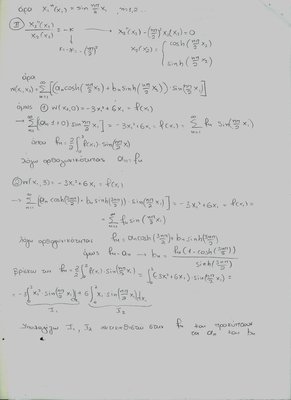 άρα X₁ⁿ(x₁) = sin nπ/2 x₁, n=1,2...
II X₂''(x₂)/X₂(x₂) = -κ → X₂''(x₂) - (nπ/2)² X₂(x₂) = 0
κ = -(nπ/2)² X₂(x₂) = { cosh(nπ/2 x₂)
sinh(nπ/2 x₂)
άρα
w(x₁,x₂) = Σ [(aₙ cosh(nπ/2 x₂) + bₙ sinh(nπ/2 x₂)) · sin(nπ/2 x₁)]
όμως ① w(x₁,0) = -3x₁² + 6x₁ = f(x₁)
→ Σ [(aₙ·1+0) sin(nπ/2 x₁)] = -3x₁² + 6x₁ = f(x₁) = Σ fₙ sin(nπ/2 x₁)
όπου fₙ = 2/2 ∫₀² f(x₁) · sin(nπ/2 x₁)
λόγω ορθογωνιότητας aₙ = fₙ
② w(x₁,3) = -3x₁² + 6x₁ = f(x₁)
→ Σ [(aₙ cosh(3nπ/2) + bₙ sinh(3nπ/2)) · sin(nπ/2 x₁)] = -3x₁² + 6x₁ = f(x₁) =
= Σ fₙ sin(nπ/2 x₁)
λόγω ορθογωνιότητας fₙ = aₙ cosh(3nπ/2) + bₙ sinh(3nπ/2)
όμως fₙ = aₙ → bₙ = fₙ(1 - cosh(3nπ/2)) / sinh(3nπ/2)
βρίσκω το fₙ = 2/2 ∫₀² f(x₁) · sin(nπ/2 x₁) = ∫₀² (-3x₁² + 6x₁) · sin(nπ/2 x₁) =
= -3 ∫₀² x₁² · sin(nπ/2 x₁) dx₁ + 6 ∫₀² x₁ · sin(nπ/2 x₁) dx₁
I₁ I₂
Υπολογίζω I₁, I₂ αντικαθιστώ στην fₙ και προκύπτουν
τα aₙ και bₙ